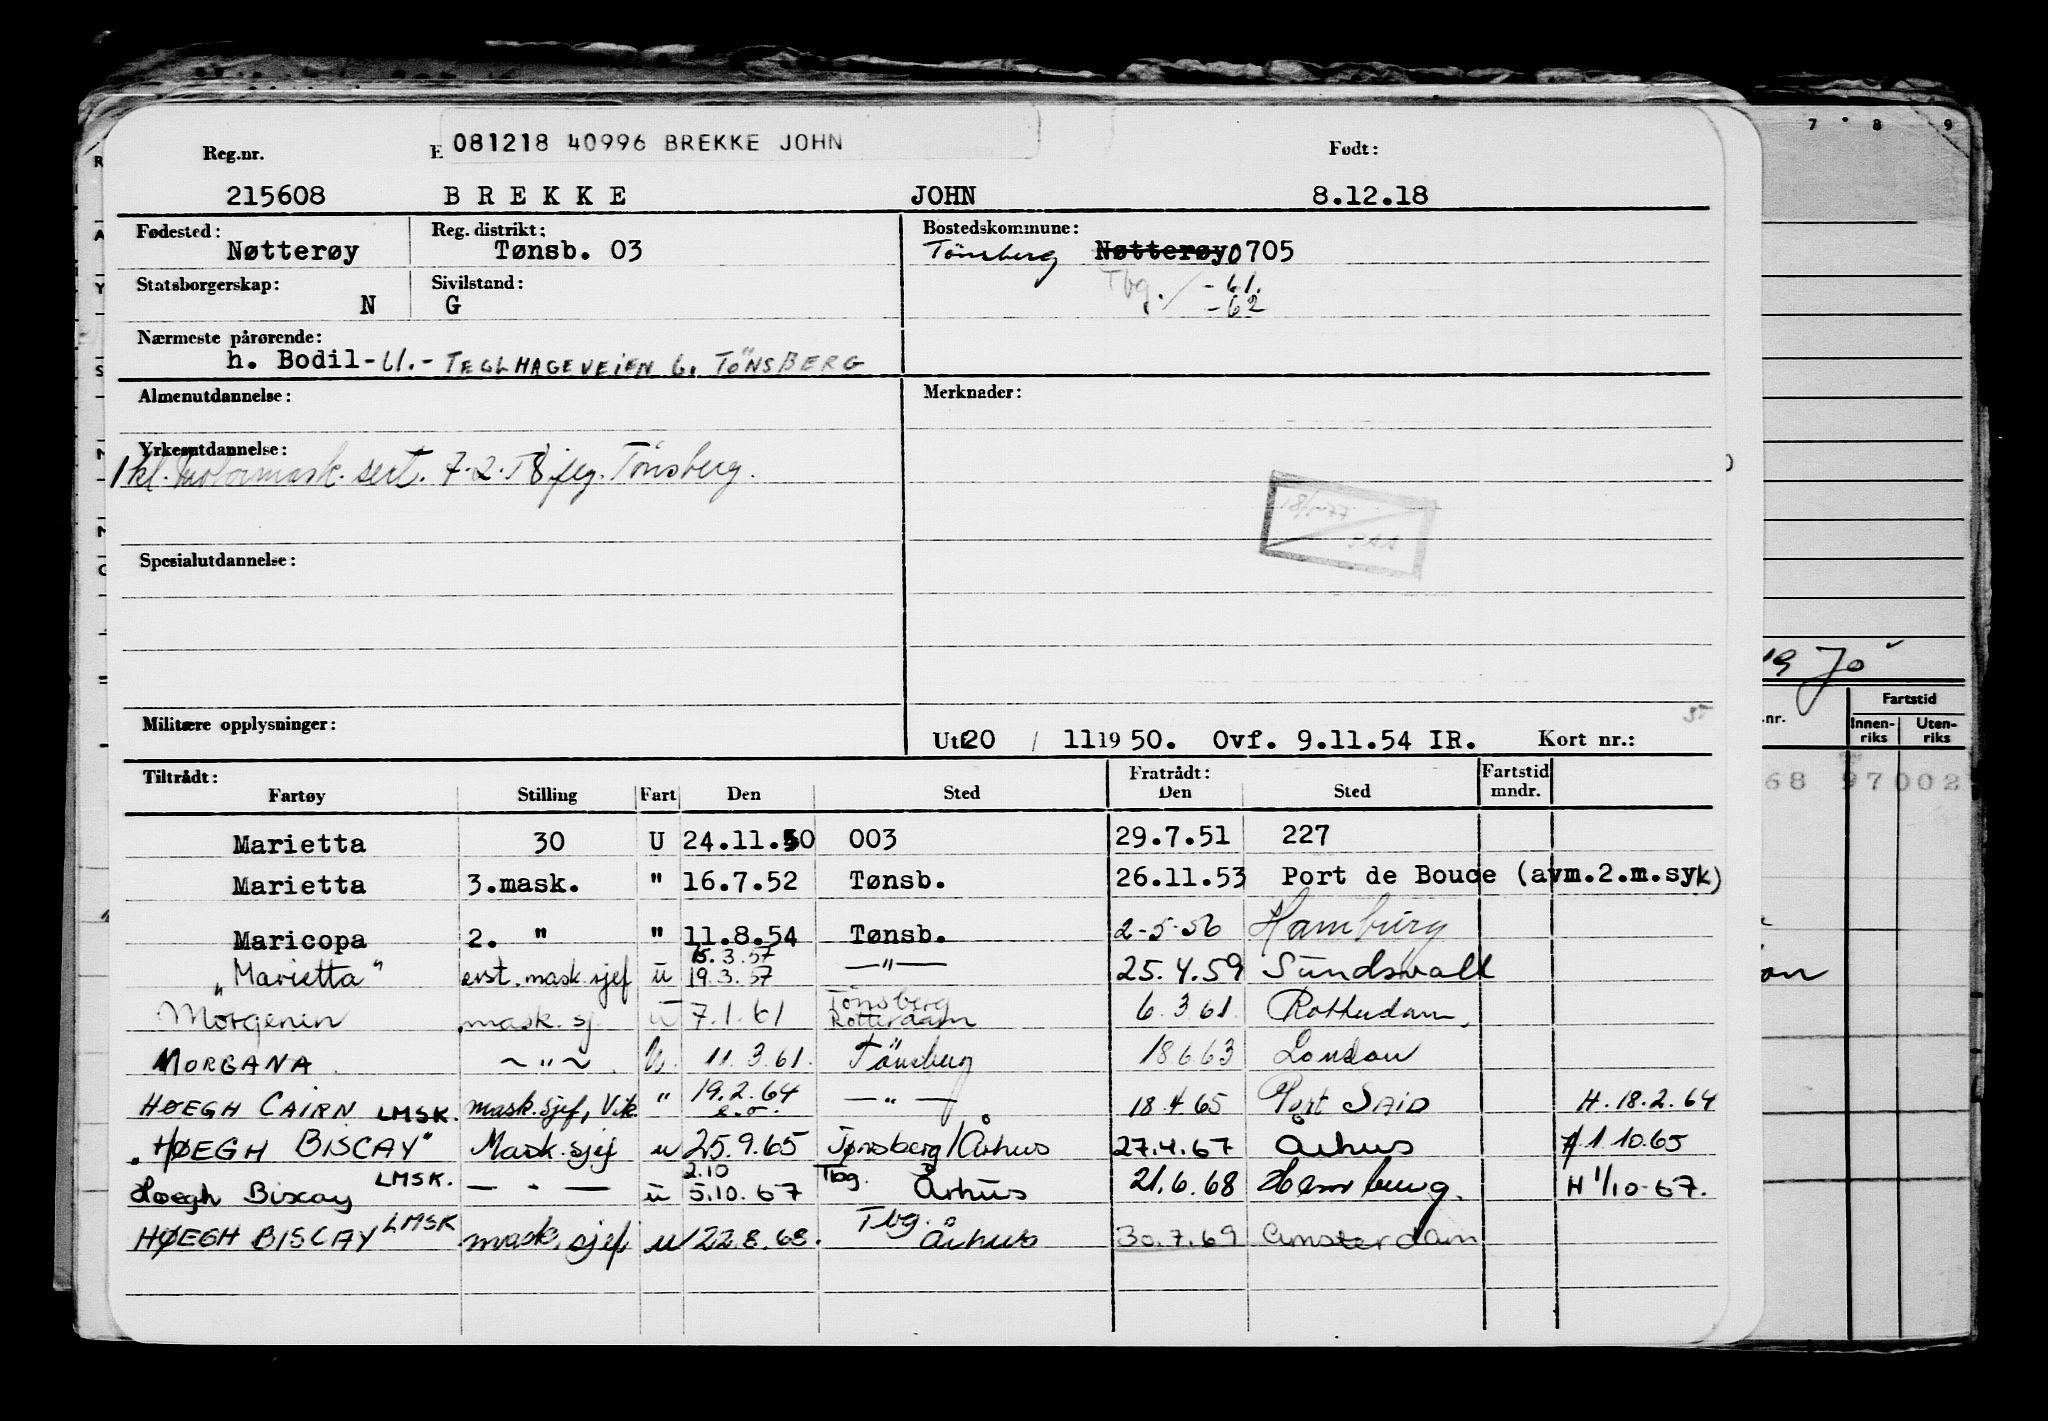 081218 40996 BREKKE JOHN
Reg.nr. E Født:
215608 B R E K K E JOHN 8.12.18
Fødested: Reg. distrikt: Bostedskommune:
Nøtterøy Tønsb. 03 Tönsberg Nøtterøy 0705
Statsborgerskap: Sivilstand: Tbg. / -61.
N G -62
Nærmeste pårørende:
h. Bodil -U.- TEGLHAGEVEIEN 6. TÖNSBERG
Almenutdannelse: Merknader:
Yrkesutdannelse:
1 kl. motormask. sert. 7-2-58 Tönsberg.
Spesialutdannelse:
Militære opplysninger:
Utf 20 / 11 19 50. Ovf. 9.11.54 IR. Kort nr.:
Tiltrådt: Fratrådt: Fartstid
Fartøy Stilling Fart Den Sted Den Sted mndr.
Marietta 30 U 24.11.50 003 29.7.51 227
Marietta 3.mask. " 16.7.52 Tønsb. 26.11.53 Port de Bouce (avm.2.m.syk)
Maricopa 2. " " 11.8.54 Tønsb. 2-5-56 Hamburg
15.3.57
"Marietta" erst. mask sjef u 19.3.57 —"— 25.4.59 Sundsvall
Morgenen mask. sj u 7.1.61 Tönsberg Rotterdam 6.3.61. Rotterdam,
MORGANA ~ " ~ U. 11.3.61. Tönsberg 18.6.63 London
HØEGH CAIRN LMSK. mask.sjef, Vik. " 19.2.64 e.o. —"— 18.4.65 Port SAID H.18.2.64
"HØEGH BISCAY" Mask.sjef u 25.9.65 Tønsberg/Århus 27.4.67 Århus 1.10.65
Hoegh Biscay LMSK. — " — u 2.10 5.10.67 Tbg. Århus 21.6.68 Hamburg. H 1/10-67.
HØEGH BISCAY LMSK mask.sjef u 22.8.68. Tbg. Århus 30.7.69 Amsterdam
7 8 9
19 70
Fartstid
nr. Innen-riks Uten-riks
68 97002